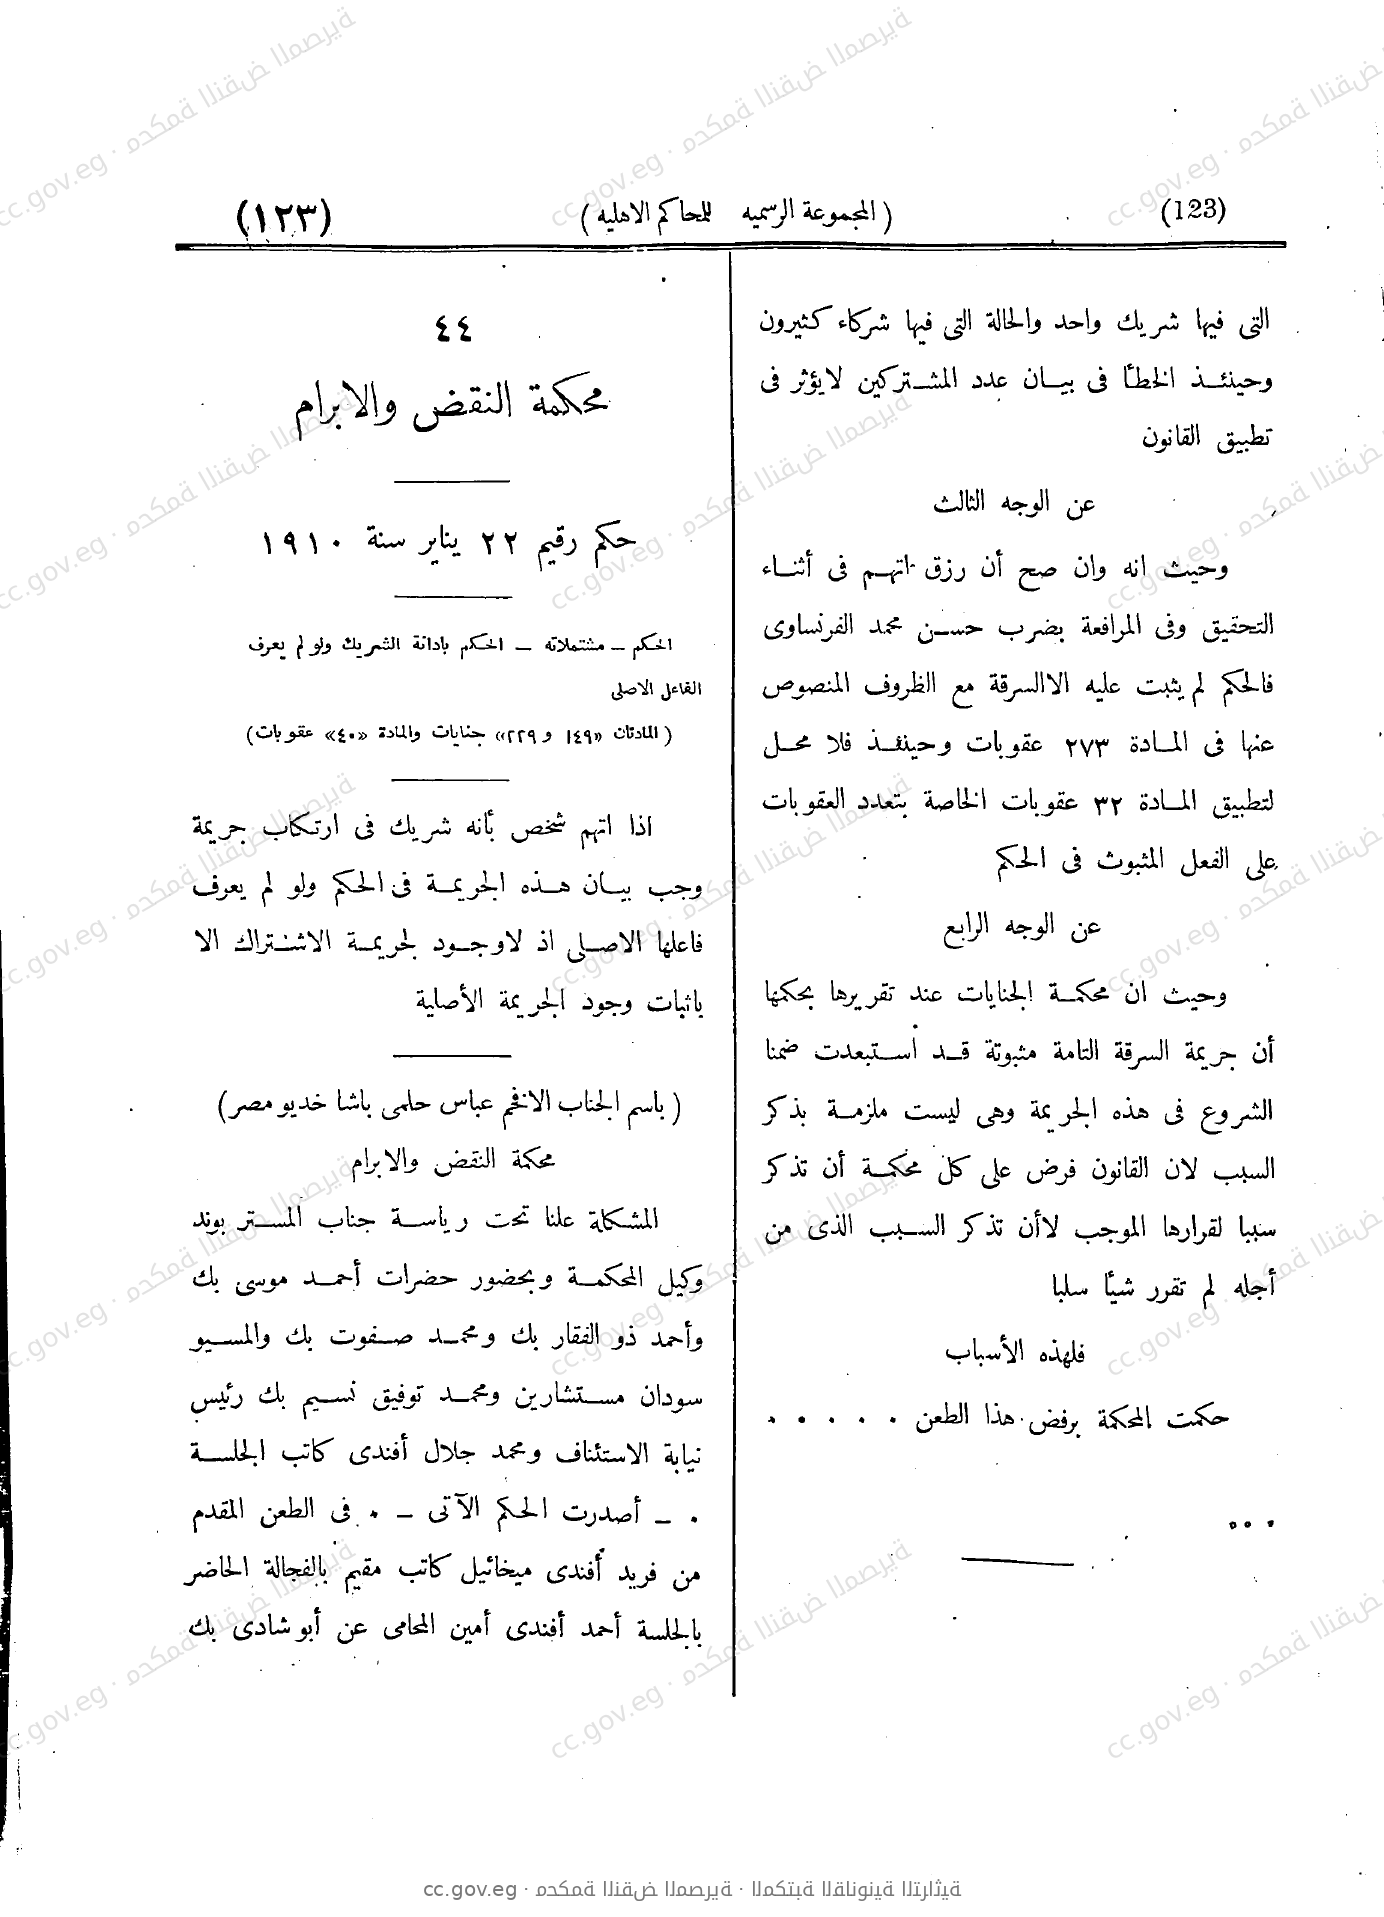 (123)
( المجموعة الرسميه للمحاكم الاهليه )
(١٢٣)
التى فيها شريك واحد والحالة التى فيها شركاء كثيرون
وحينئذ الخطأ فى بيان عدد المشتركين لا يؤثر فى
تطبيق القانون
عن الوجه الثالث
وحيث انه وان صح أن رزق اتهم فى أثناء
التحقيق وفى المرافعة بضرب حسن محمد الفرنساوى
فالحكم لم يثبت عليه الا السرقة مع الظروف المنصوص
عنها فى المادة ٢٧٣ عقوبات وحينئذ فلا محل
لتطبيق المادة ٣٢ عقوبات الخاصة بتعدد العقوبات
على الفعل المثبوت فى الحكم
عن الوجه الرابع
وحيث ان محكمة الجنايات عند تقريرها بحكمها
أن جريمة السرقة التامة مثبوتة قد استبعدت ضمنا
الشروع فى هذه الجريمة وهى ليست ملزمة بذكر
السبب لان القانون فرض على كل محكمة أن تذكر
سببا لقرارها الموجب لا أن تذكر السبب الذى من
أجله لم تقرر شيأ سلبا
فلهذه الأسباب
حكمت المحكمة برفض هذا الطعن . . . . .
. . .
٤٤
محكمة النقض والابرام
حكم رقيم ٢٢ يناير سنة ١٩١٠
الحكم – مشتملاته – الحكم بادانة الشريك ولو لم يعرف
الفاعل الاصلى
( المادتان «١٤٩ و ٢٢٩» جنايات والمادة «٤٠» عقوبات)
اذا اتهم شخص بأنه شريك فى ارتكاب جريمة
وجب بيان هذه الجريمة فى الحكم ولو لم يعرف
فاعلها الاصلى اذ لا وجود لجريمة الاشتراك الا
باثبات وجود الجريمة الأصلية
( باسم الجناب الافخم عباس حلمى باشا خديو مصر )
محكمة النقض والابرام
المشكلة علنا تحت رياسة جناب المستر بوند
وكيل المحكمة وبحضور حضرات أحمد موسى بك
وأحمد ذو الفقار بك ومحمد صفوت بك والمسيو
سودان مستشارين ومحمد توفيق نسيم بك رئيس
نيابة الاستئناف ومحمد جلال أفندى كاتب الجلسة
. – أصدرت الحكم الآتى – . فى الطعن المقدم
من فريد أفندى ميخائيل كاتب مقيم بالفجالة الحاضر
بالجلسة أحمد أفندى أمين المحامى عن أبو شادى بك
cc.gov.eg · محكمة النقض المصرية · المكتبة القانونية التراثية